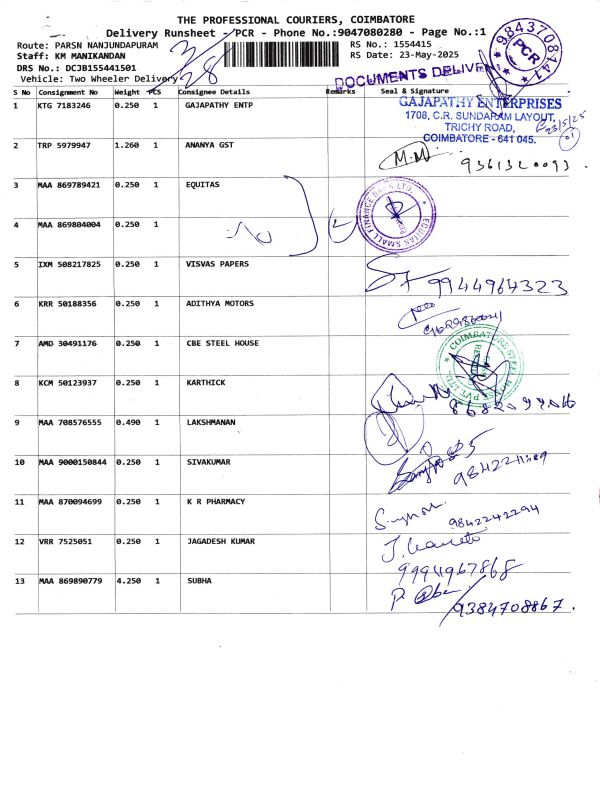 THE PROFESSIONAL COURIERS, COIMBATORE
Delivery Runsheet - PCR - Phone No.:9047080280 - Page No.:1
Route: PARSN NANJUNDAPURAM RS No.: 1554415
Staff: KM MANIKANDAN RS Date: 23-May-2025
DRS No.: DCJB155441501
Vehicle: Two Wheeler Delivery
3/28
DOCUMENTS DELIVE
9843708141 PCR
S No Consignment No Weight PCS Consignee Details Remarks Seal & Signature
1 KTG 7183246 0.250 1 GAJAPATHY ENTP
GAJAPATHY ENTERPRISES
1708, C.R. SUNDARAM LAYOUT,
TRICHY ROAD,
COIMBATORE - 641 045.
23/5/25
2 TRP 5979947 1.260 1 ANANYA GST
3 MAA 869789421 0.250 1 EQUITAS
4 MAA 869804004 0.250 1
EQUITAS SMALL FINANCE BANK LTD.
5 IXM 508217825 0.250 1 VISVAS PAPERS
9944964323
6 KRR 50188356 0.250 1 ADITHYA MOTORS
7 AMD 30491176 0.250 1 CBE STEEL HOUSE
8 KCM 50123937 0.250 1 KARTHICK
9 MAA 708576555 0.490 1 LAKSHMANAN
10 MAA 9000150844 0.250 1 SIVAKUMAR
11 MAA 870094699 0.250 1 K R PHARMACY
9842242294
12 VRR 7525051 0.250 1 JAGADESH KUMAR
9994967868
13 MAA 869890779 4.250 1 SUBHA
9384708867.